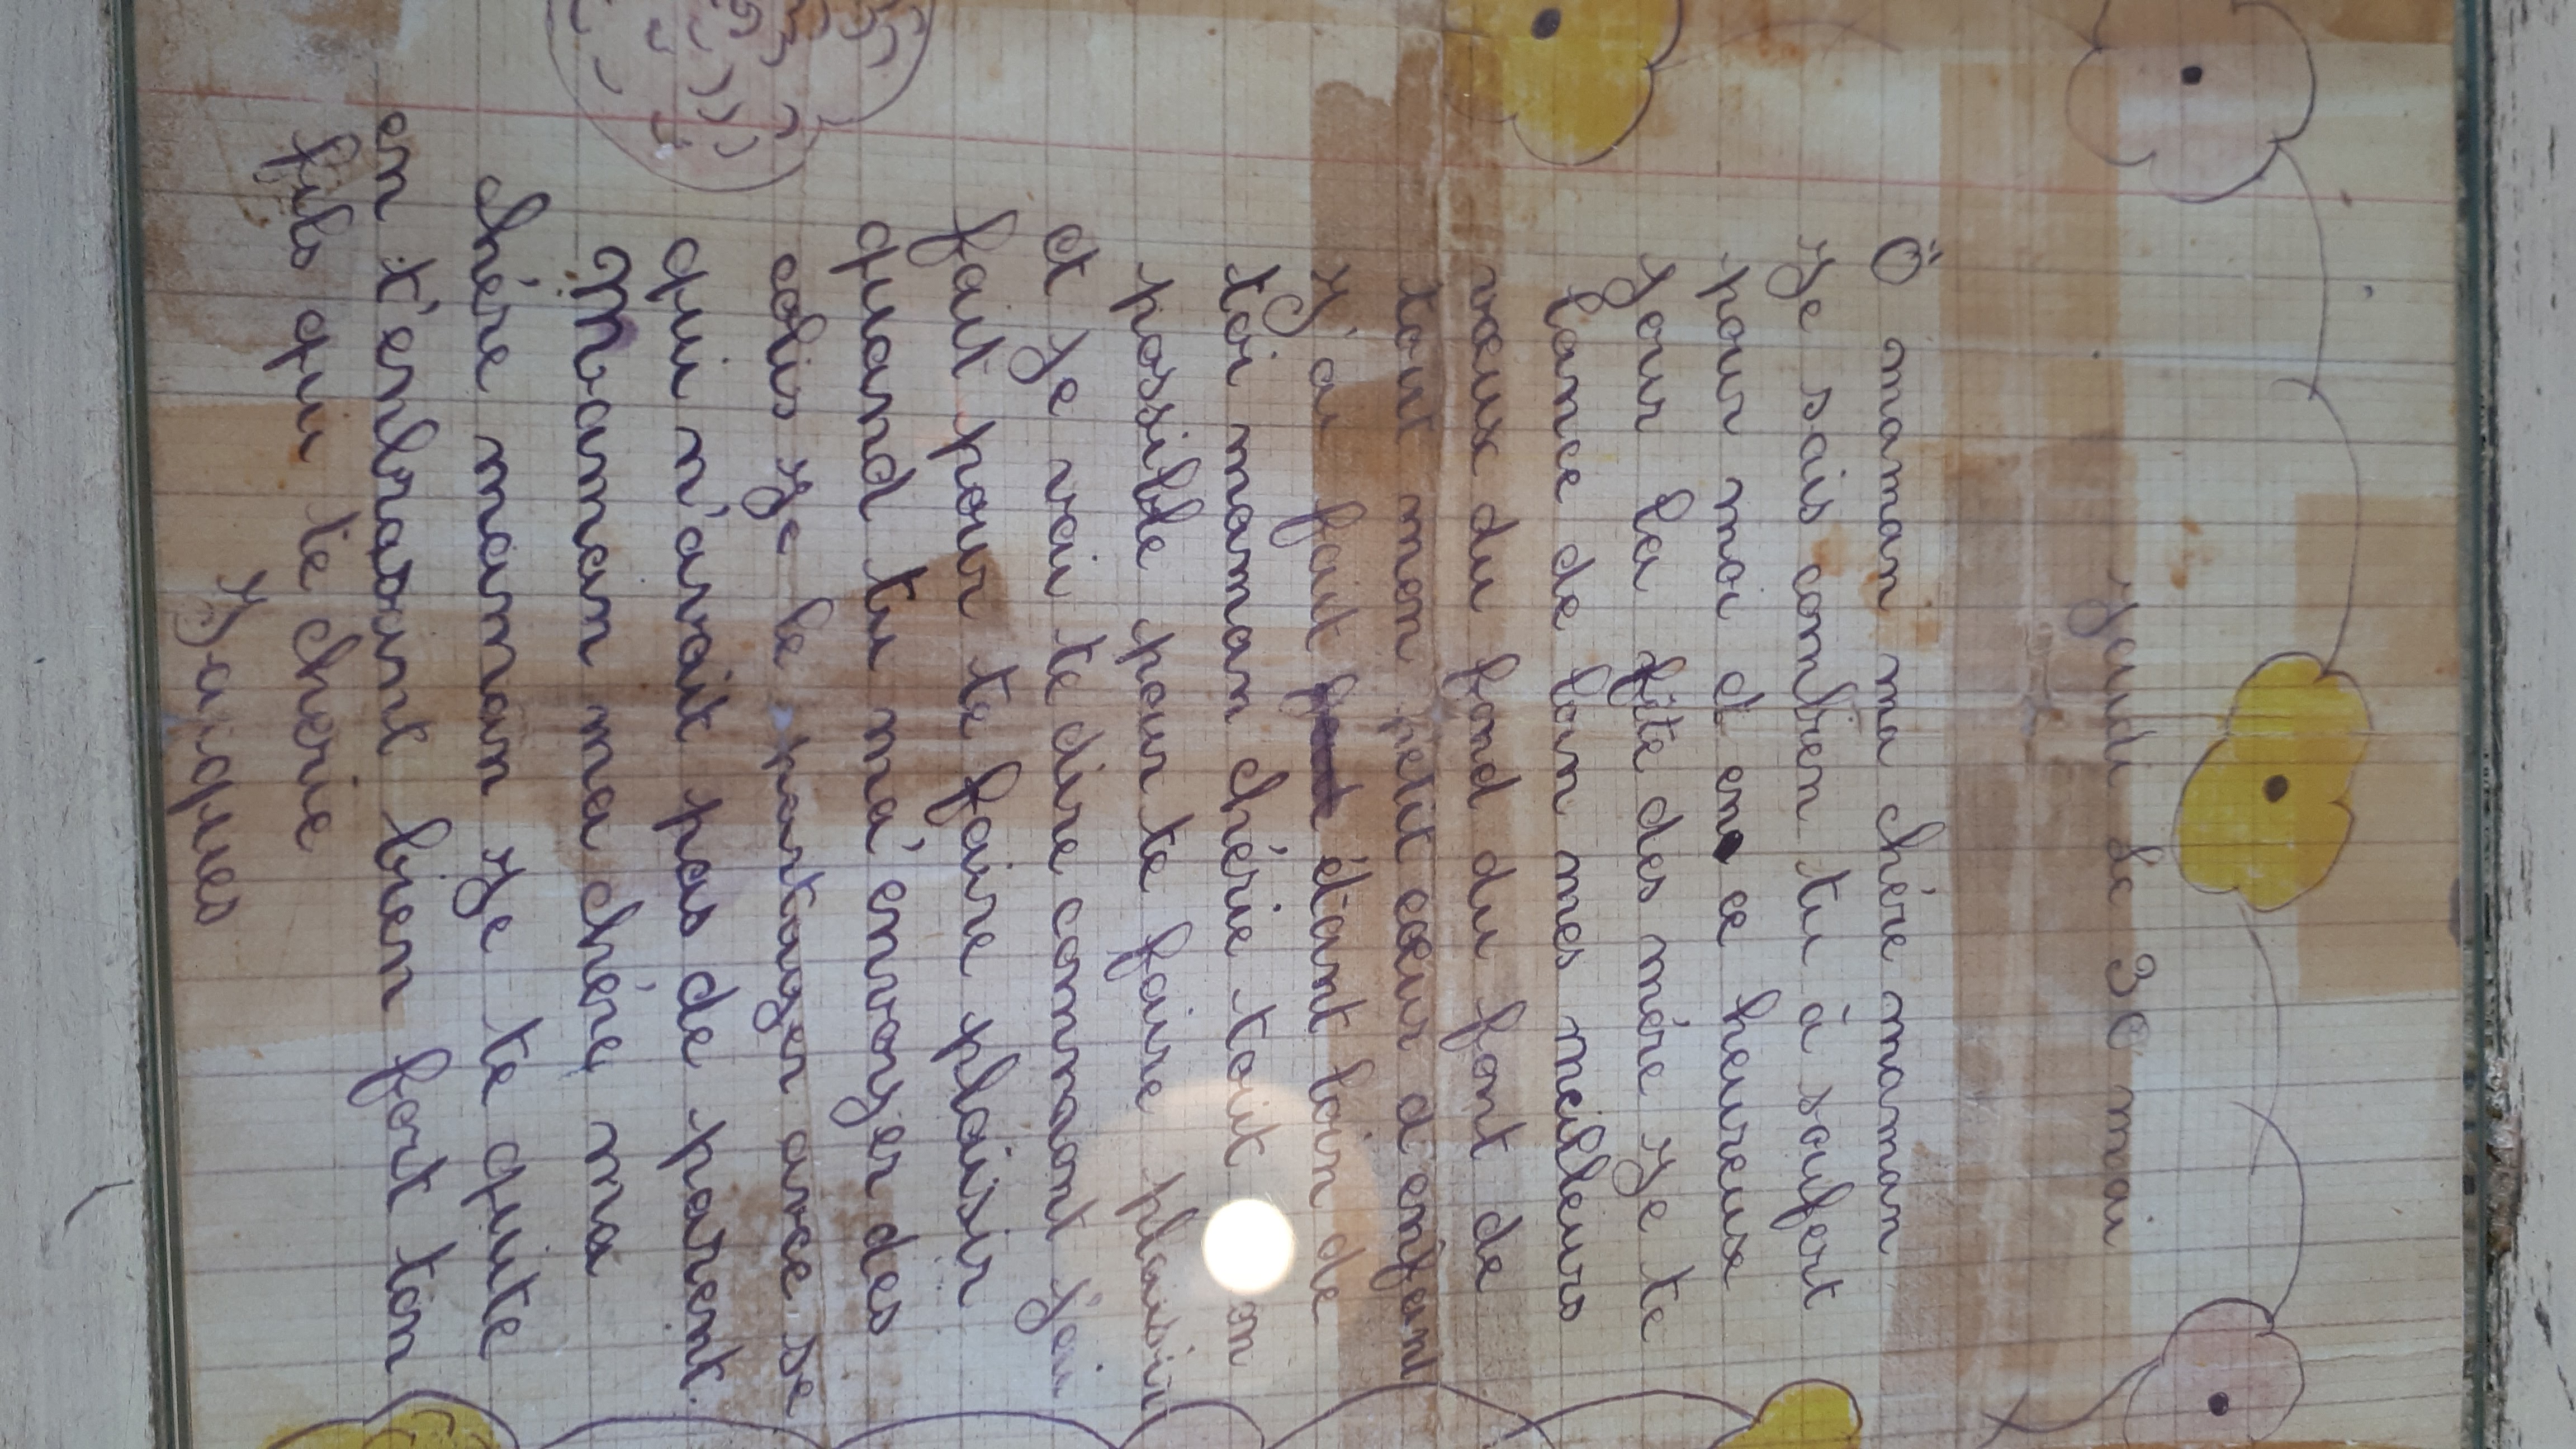 Jeudi Le 30 mai
Ô maman ma chére maman
Je sais combien tu à soufert
pour moi d en ce heureux
Jour la fête des mére Je te
lance de loin mes meilleurs
vœux du fond du font de
tout mon petit cœur d'enfant
J'ai fait étant loin de
toi maman chérie tout
possible pour te faire plaisir
et Je vai te dire connsant j'ai
fait pour te faire plaisir
quand tu ma' envoyer des
colis Je le partager avec se
qui n'avait pas de parent.
Maman ma chére ma
chére maman Je te quite
en t'enbrasant bien fort ton
fils qui te cherie
Jaques